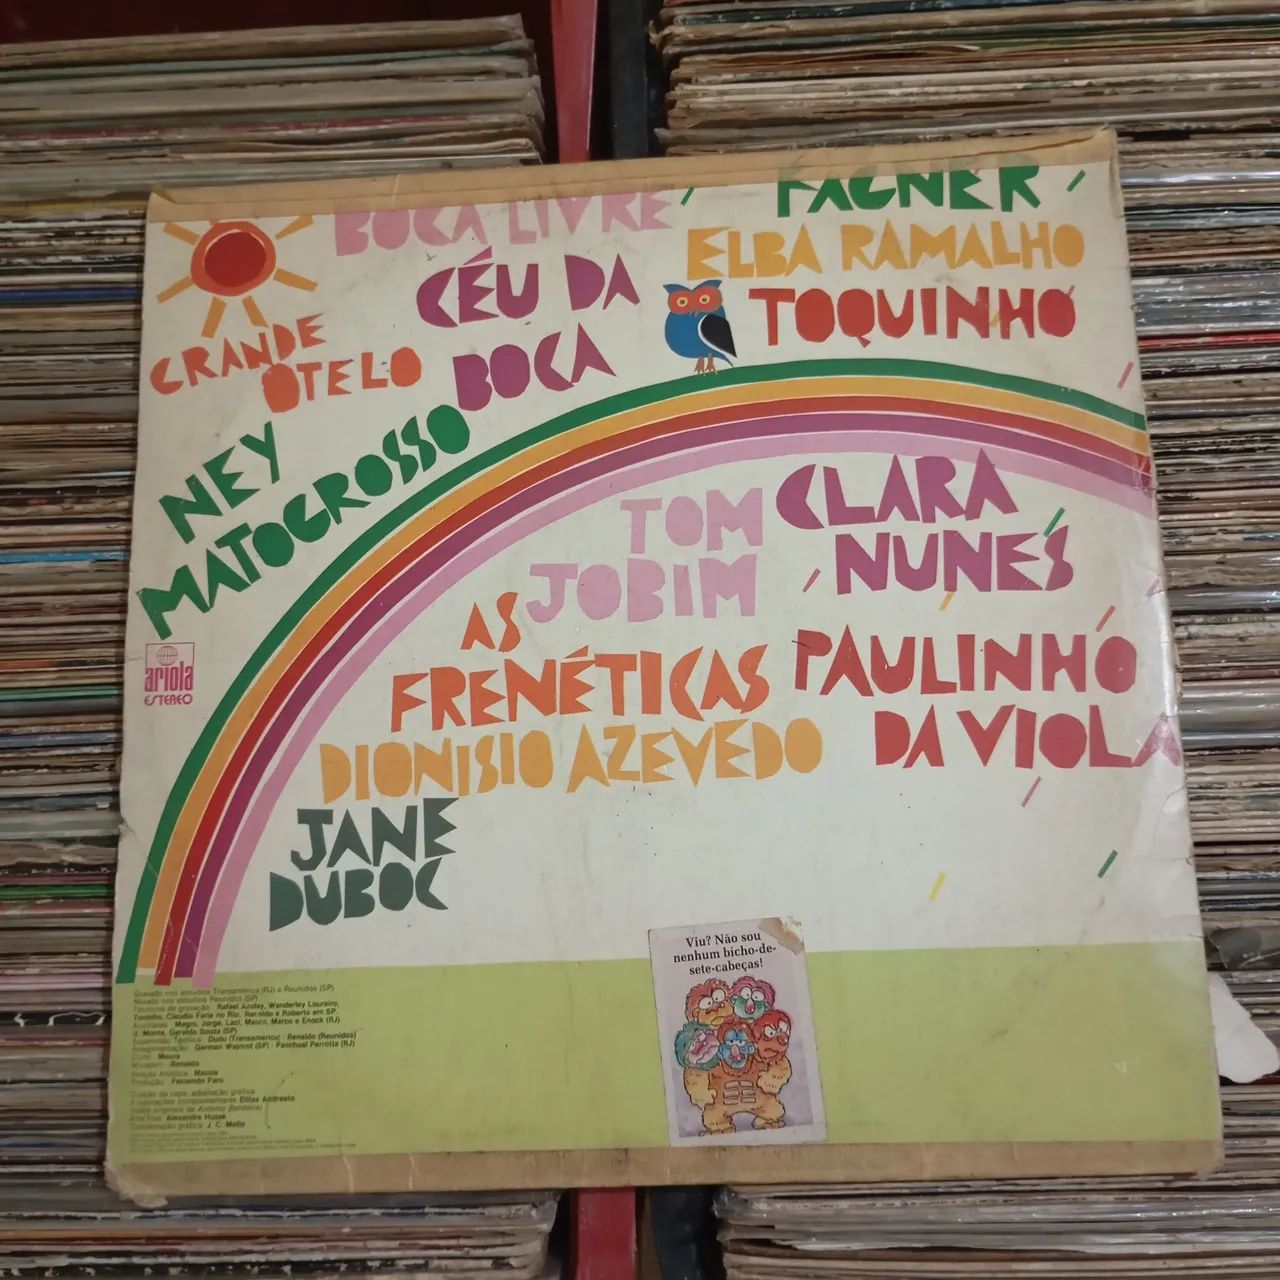 BOCA LIVRE
FAGNER
CÉU DA
BOCA
ELBA RAMALHO
TOQUINHO
GRANDE
OTELO
NEY
MATOGROSSO
TOM
JOBIM
CLARA
NUNES
AS
FRENÉTICAS
PAULINHO
DA VIOLA
DIONISIO AZEVEDO
JANE
DUBOC
ariola
ESTEREO
Viu? Não sou
nenhum bicho-de-
sete-cabeças!
Gravado nos estúdios Transamérica (RJ) e Reunidos (SP)
Mixado nos estúdios Reunidos (SP)
Técnicos de gravação: Rafael Azulay, Wanderley Loureiro,
Toninho, Claudio Faria no Rio, Renaldo e Roberto em SP.
Auxiliares: Magro, Jorge, Laci, Mauro, Marco e Enock (RJ)
Supervisão Técnica: Dudu (Transamérica) - Renaldo (Reunidos)
Arregimentação: German Wajnrot (SP) - Paschoal Perrotta (RJ)
Corte: Moura
Mixagem: Renaldo
Produção: Fernando Faro
Criação da capa, adaptação gráfica
e ilustrações complementares Elifas Andreato
Arte final: Alexandre Huzak
Coordenação gráfica: J. C. Mello